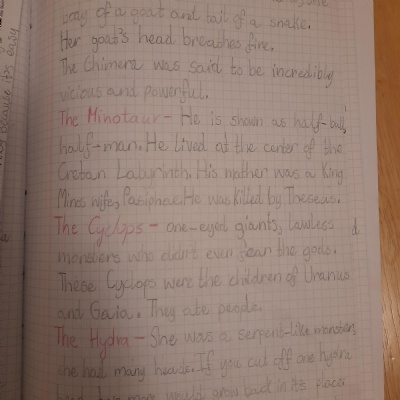 body of a goat and tail of a snake.
Her goat's head breathes fire.
The Chimera was said to be incredibly
vicious and powerful.
The Minotaur - He is shown as half-bull,
half-man. He lived at the center of the
Cretan Labyrinth. His mother was a King
Minos wife, Pasiphae. He was killed by Theseus.
The Cyclops - one-eyed giants, lawless
monsters who didn't even fear the gods.
These Cyclops were the children of Uranus
and Gaia. They ate people.
The Hydra - She was a serpent-like monster,
she had many heads. If you cut off one hydra
head, two more would grow back in its place
because its easy